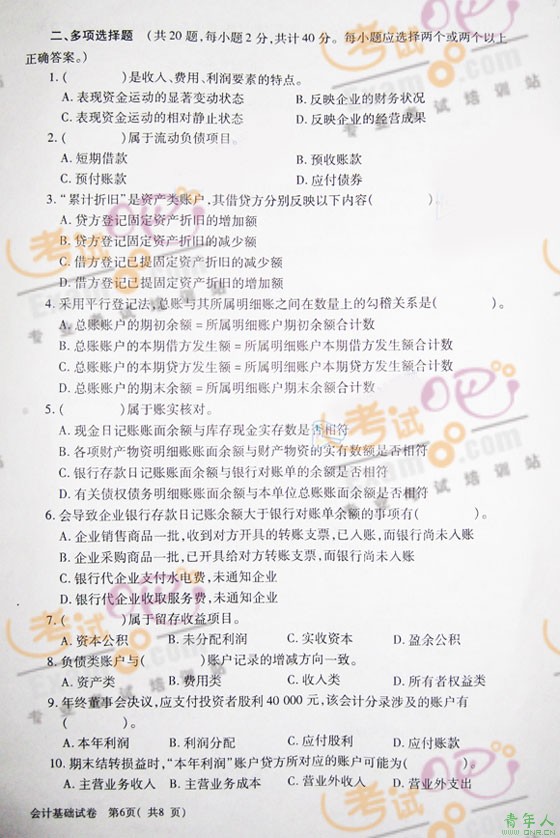 二、多项选择题 (共20题,每小题2分,共计40分。每小题应选择两个或两个以上
正确答案。)
1.( )是收入、费用、利润要素的特点。
A.表现资金运动的显著变动状态 B.反映企业的财务状况
C.表现资金运动的相对静止状态 D.反映企业的经营成果
2.( )属于流动负债项目。
A.短期借款 B.预收账款
C.预付账款 D.应付债券
3.“累计折旧”是资产类账户,其借贷方分别反映以下内容( )
A.贷方登记固定资产折旧的增加额
B.贷方登记固定资产折旧的减少额
C.借方登记已提固定资产折旧的减少额
D.借方登记已提固定资产折旧的增加额
4.采用平行登记法,总账与其所属明细账之间在数量上的勾稽关系是( )。
A.总账账户的期初余额=所属明细账户期初余额合计数
B.总账账户的本期借方发生额=所属明细账户本期借方发生额合计数
C.总账账户的本期贷方发生额=所属明细账户本期贷方发生额合计数
D.总账账户的期末余额=所属明细账户期末余额合计数
5.( )属于账实核对。
A.现金日记账账面余额与库存现金实存数是否相符
B.各项财产物资明细账账面余额与财产物资的实有数额是否相符
C.银行存款日记账账面余额与银行对账单的余额是否相符
D.有关债权债务明细账账面余额与本单位总账账面余额是否相符
6.会导致企业银行存款日记账余额大于银行对账单余额的事项有( )。
A.企业销售商品一批,收到对方开具的转账支票,已入账,而银行尚未入账
B.企业采购商品一批,已开具给对方转账支票,而银行尚未入账
C.银行代企业支付水电费,未通知企业
D.银行代企业收取服务费,未通知企业
7.( )属于留存收益项目。
A.资本公积 B.未分配利润 C.实收资本 D.盈余公积
8.负债类账户与( )账户记录的增减方向一致。
A.资产类 B.费用类 C.收入类 D.所有者权益类
9.年终董事会决议,应支付投资者股利40 000元,该会计分录涉及的账户有
( )。
A.本年利润 B.利润分配 C.应付股利 D.应付账款
10.期末结转损益时,“本年利润”账户贷方所对应的账户可能为( )。
A.主营业务收入 B.主营业务成本 C.营业外收入 D.营业外支出
会计基础试卷 第6页(共8 页)
考试吧
Exam8.com
专业考试培训站
青年人
www.QNR.cn